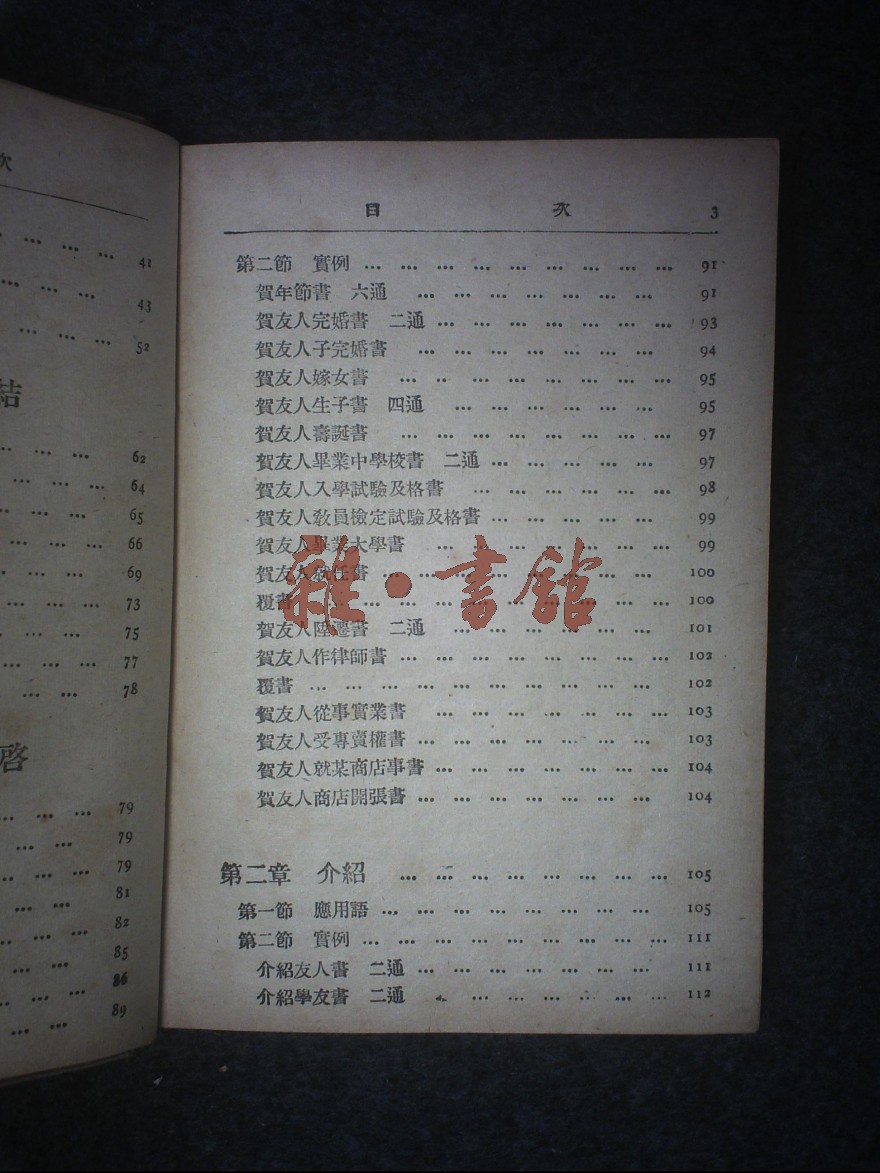 次
41
43
52
結
62
64
65
66
69
73
75
77
78
啓
79
79
79
81
82
85
86
89
目 次 3
第二節 實例 … … … … … … … … … 91
賀年節書 六通 … … … … … … … 91
賀友人完婚書 二通 … … … … … … … 93
賀友人子完婚書 … … … … … … … 94
賀友人嫁女書 … … … … … … … … 95
賀友人生子書 四通 … … … … … … 95
賀友人壽誕書 … … … … … … … … 97
賀友人畢業中學校書 二通 … … … … … 97
賀友人入學試驗及格書 … … … … … … 98
賀友人敎員檢定試驗及格書 … … … … … 99
賀友人畢業大學書 … … … … … … … 99
賀友人就任書 … … … … … … … … 100
覆書 … … … … … … … … … … 100
賀友人陞遷書 二通 … … … … … … 101
賀友人作律師書 … … … … … … … … 102
覆書 … … … … … … … … … … 102
賀友人從事實業書 … … … … … … … 103
賀友人受專賣權書 … … … … … … … 103
賀友人就某商店事書 … … … … … … … 104
賀友人商店開張書 … … … … … … … 104
第二章 介紹 … … … … … … … … 105
第一節 應用語 … … … … … … … … 105
第二節 實例 … … … … … … … … … 111
介紹友人書 二通 … … … … … … … 111
介紹學友書 二通 … … … … … … … 112
雜·書館